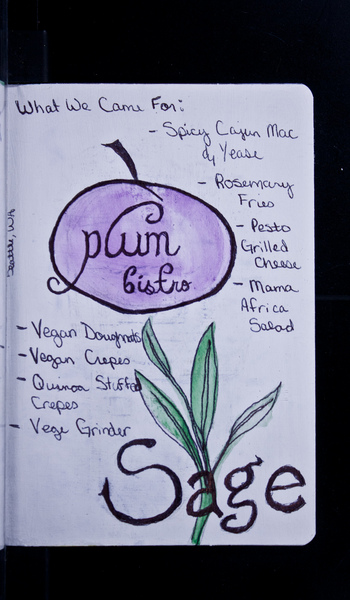 What We Came For:
- Spicy Cajun Mac
& Yease
- Rosemary
Fries
- Pesto
Grilled
Cheese
- Mama
Africa
Salad
plum
bistro
Seattle, WA
- Vegan Doughnuts
- Vegan Crepes
- Quinoa Stuffed
Crepes
- Vege Grinder
Sage